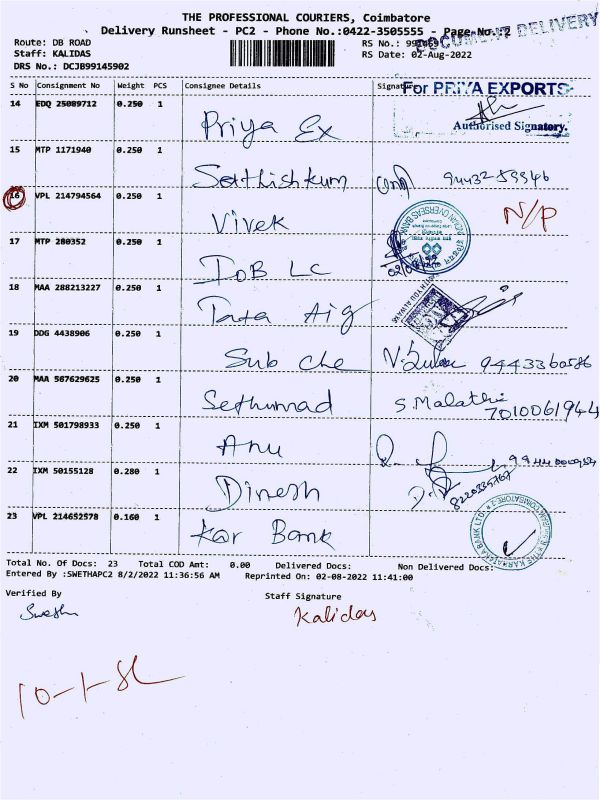 THE PROFESSIONAL COURIERS, Coimbatore
Delivery Runsheet - PC2 - Phone No.:0422-3505555 - Page No.:2
DOCUMENT DELIVERY
Route: DB ROAD
Staff: KALIDAS
DRS No.: DCJB99145902
RS Date: 02-Aug-2022
S No Consignment No Weight PCS Consignee Details Signature
For PRIYA EXPORTS
14 EDQ 25089712 0.250 1 Priya Ex
Authorised Signatory.
15 MTP 1171940 0.250 1 Sathishkum
16 VPL 214794564 0.250 1 Vivek N/P
17 MTP 280352 0.250 1 IOB LC
INDIAN OVERSEAS BANK
18 MAA 288213227 0.250 1 Tata Aig
19 DDG 4438906 0.250 1 Sub che 9443360586
20 MAA 567629625 0.250 1 Sethumad S.Malathi 7010061944
21 IXM 501798933 0.250 1 Anu
22 IXM 50155128 0.280 1 Dinesh
23 VPL 214652578 0.160 1 Kar Bank
Total No. Of Docs: 23 Total COD Amt: 0.00 Delivered Docs: Non Delivered Docs:
Entered By :SWETHAPC2 8/2/2022 11:36:56 AM Reprinted On: 02-08-2022 11:41:00
Verified By Staff Signature
Swetha Kalidas
10-1-SL